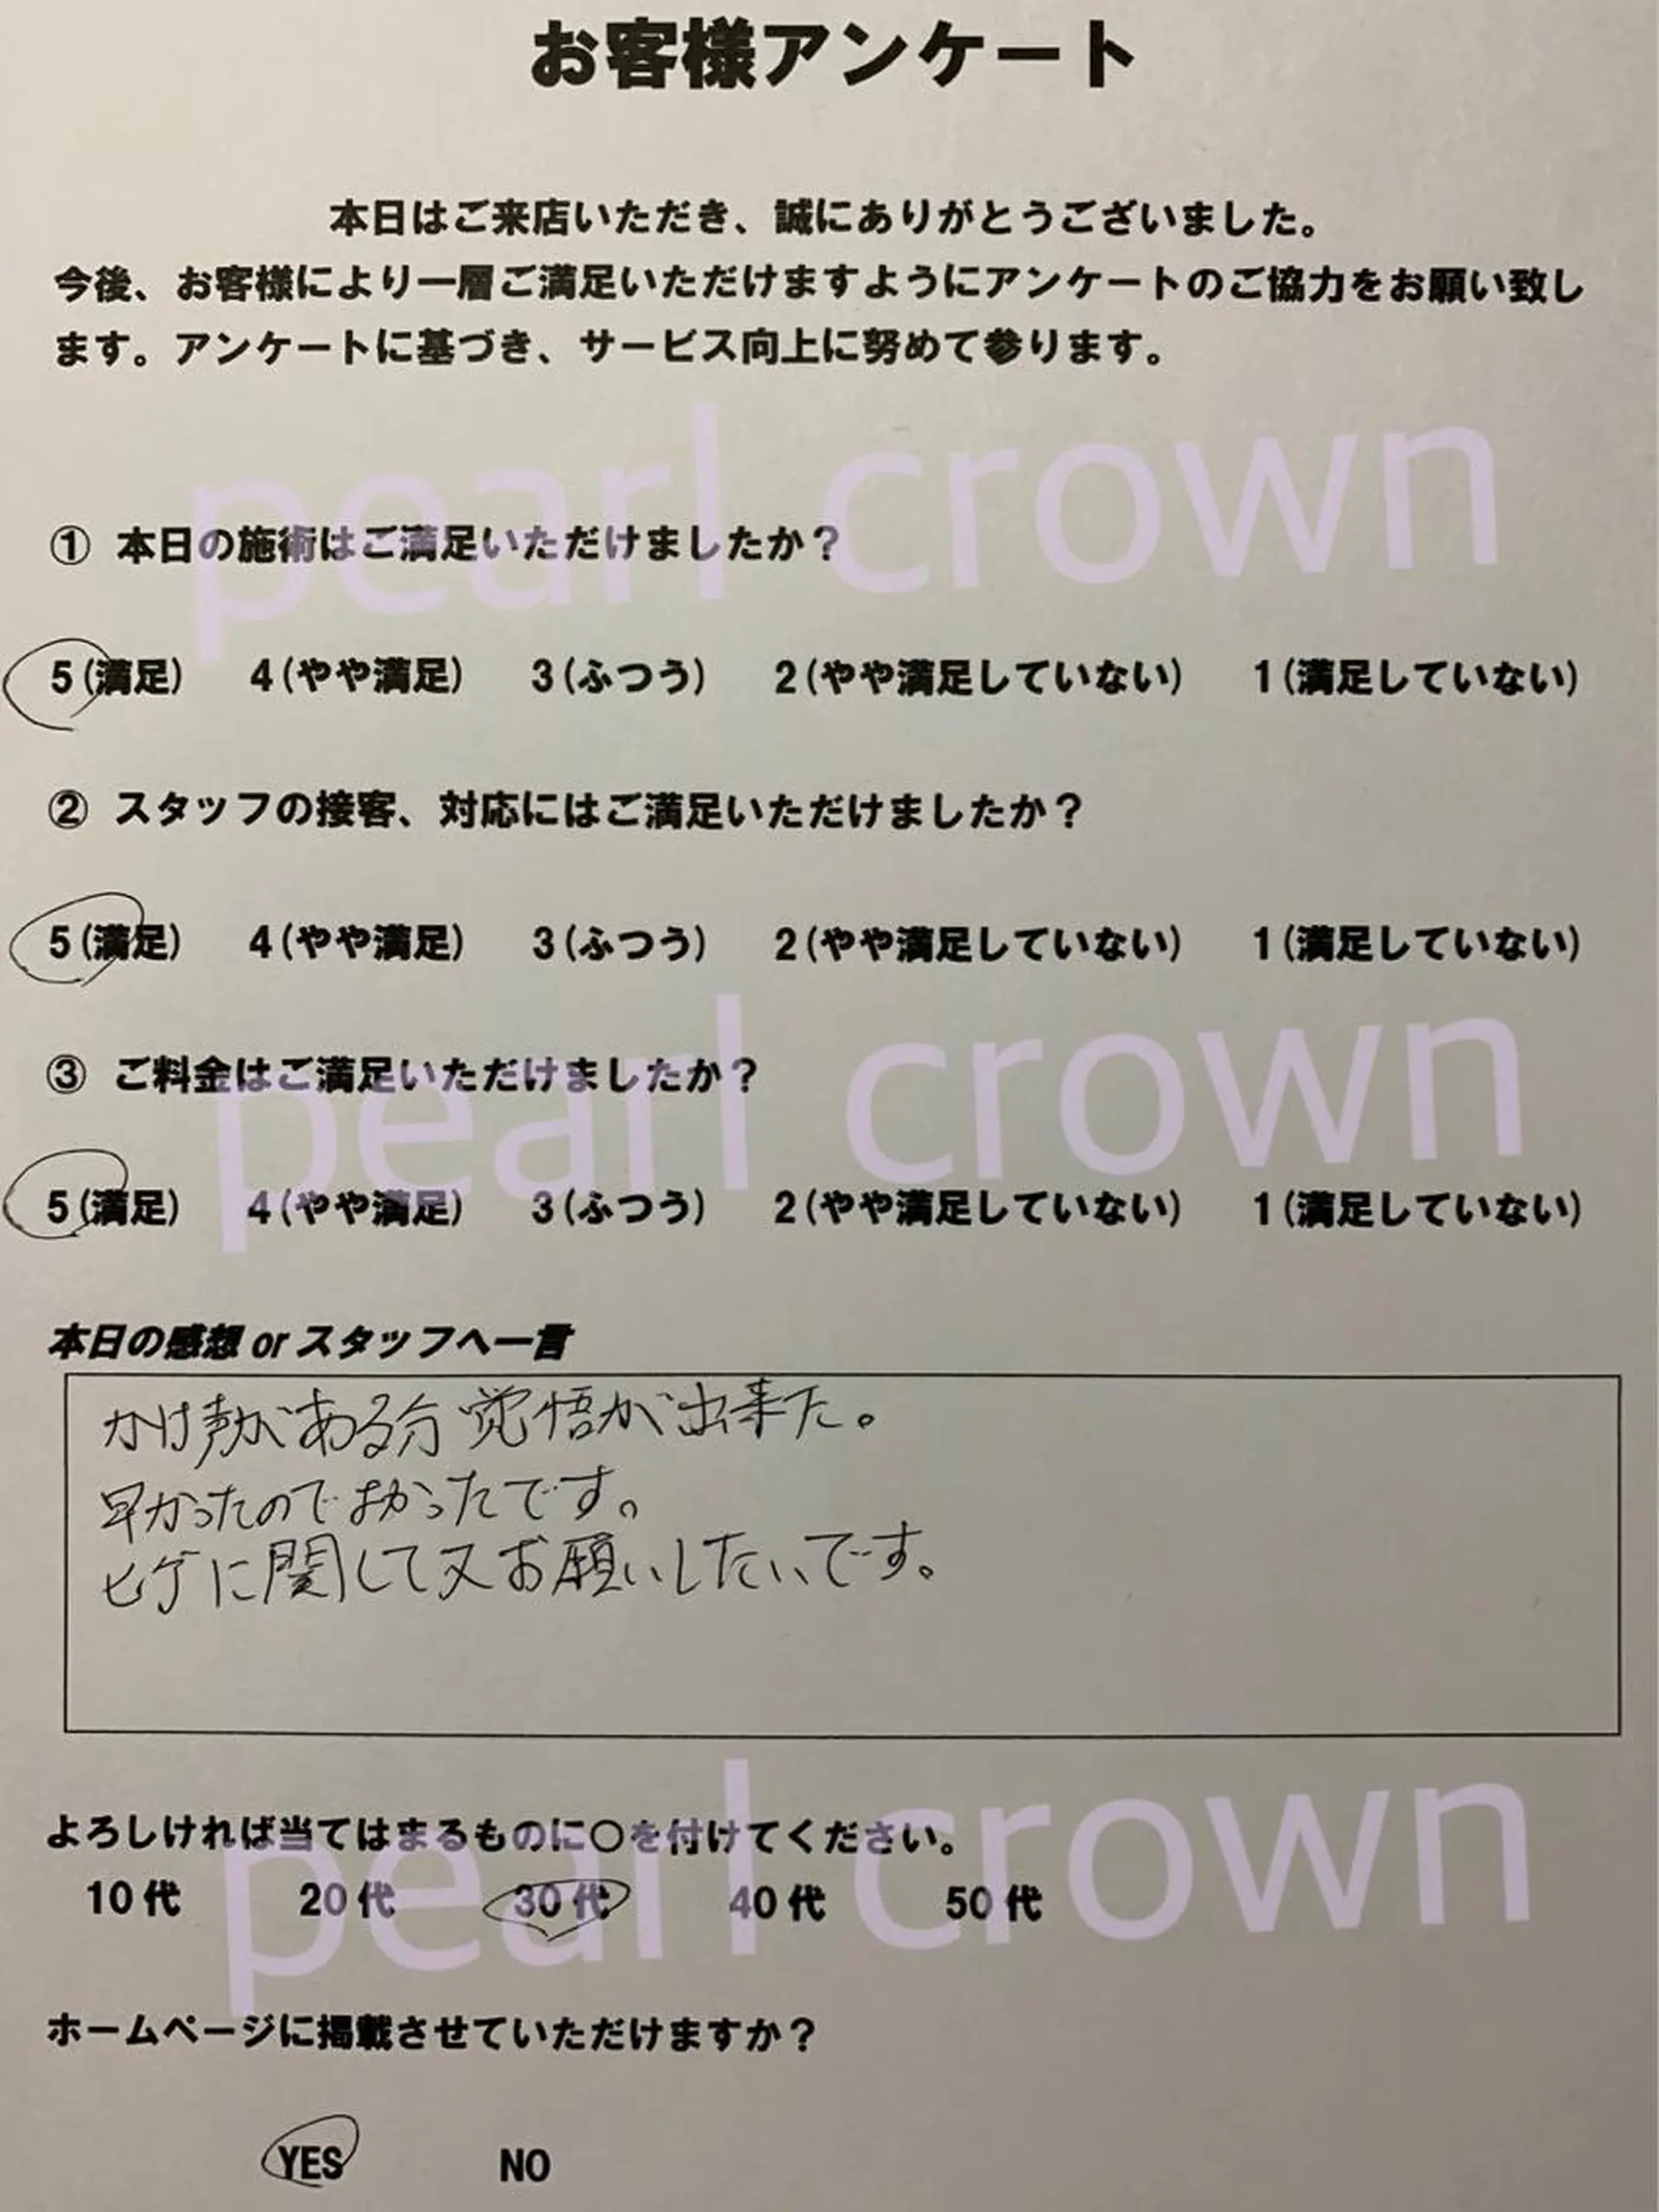 お客様アンケート
本日はご来店いただき、誠にありがとうございました。
今後、お客様により一層ご満足いただけますようにアンケートのご協力をお願い致し
ます。アンケートに基づき、サービス向上に努めて参ります。
pearl crown
① 本日の施術はご満足いただけましたか？
5(満足) 4(やや満足) 3(ふつう) 2(やや満足していない) 1(満足していない)
② スタッフの接客、対応にはご満足いただけましたか？
5(満足) 4(やや満足) 3(ふつう) 2(やや満足していない) 1(満足していない)
pearl crown
③ ご料金はご満足いただけましたか？
5(満足) 4(やや満足) 3(ふつう) 2(やや満足していない) 1(満足していない)
本日の感想 or スタッフへ一言
かけ声がある分覚悟が出来た。
早かったのでよかったです。
ヒゲに関して又お願いしたいです。
pearl crown
よろしければ当てはまるものに〇を付けてください。
10代 20代 30代 40代 50代
ホームページに掲載させていただけますか？
YES NO